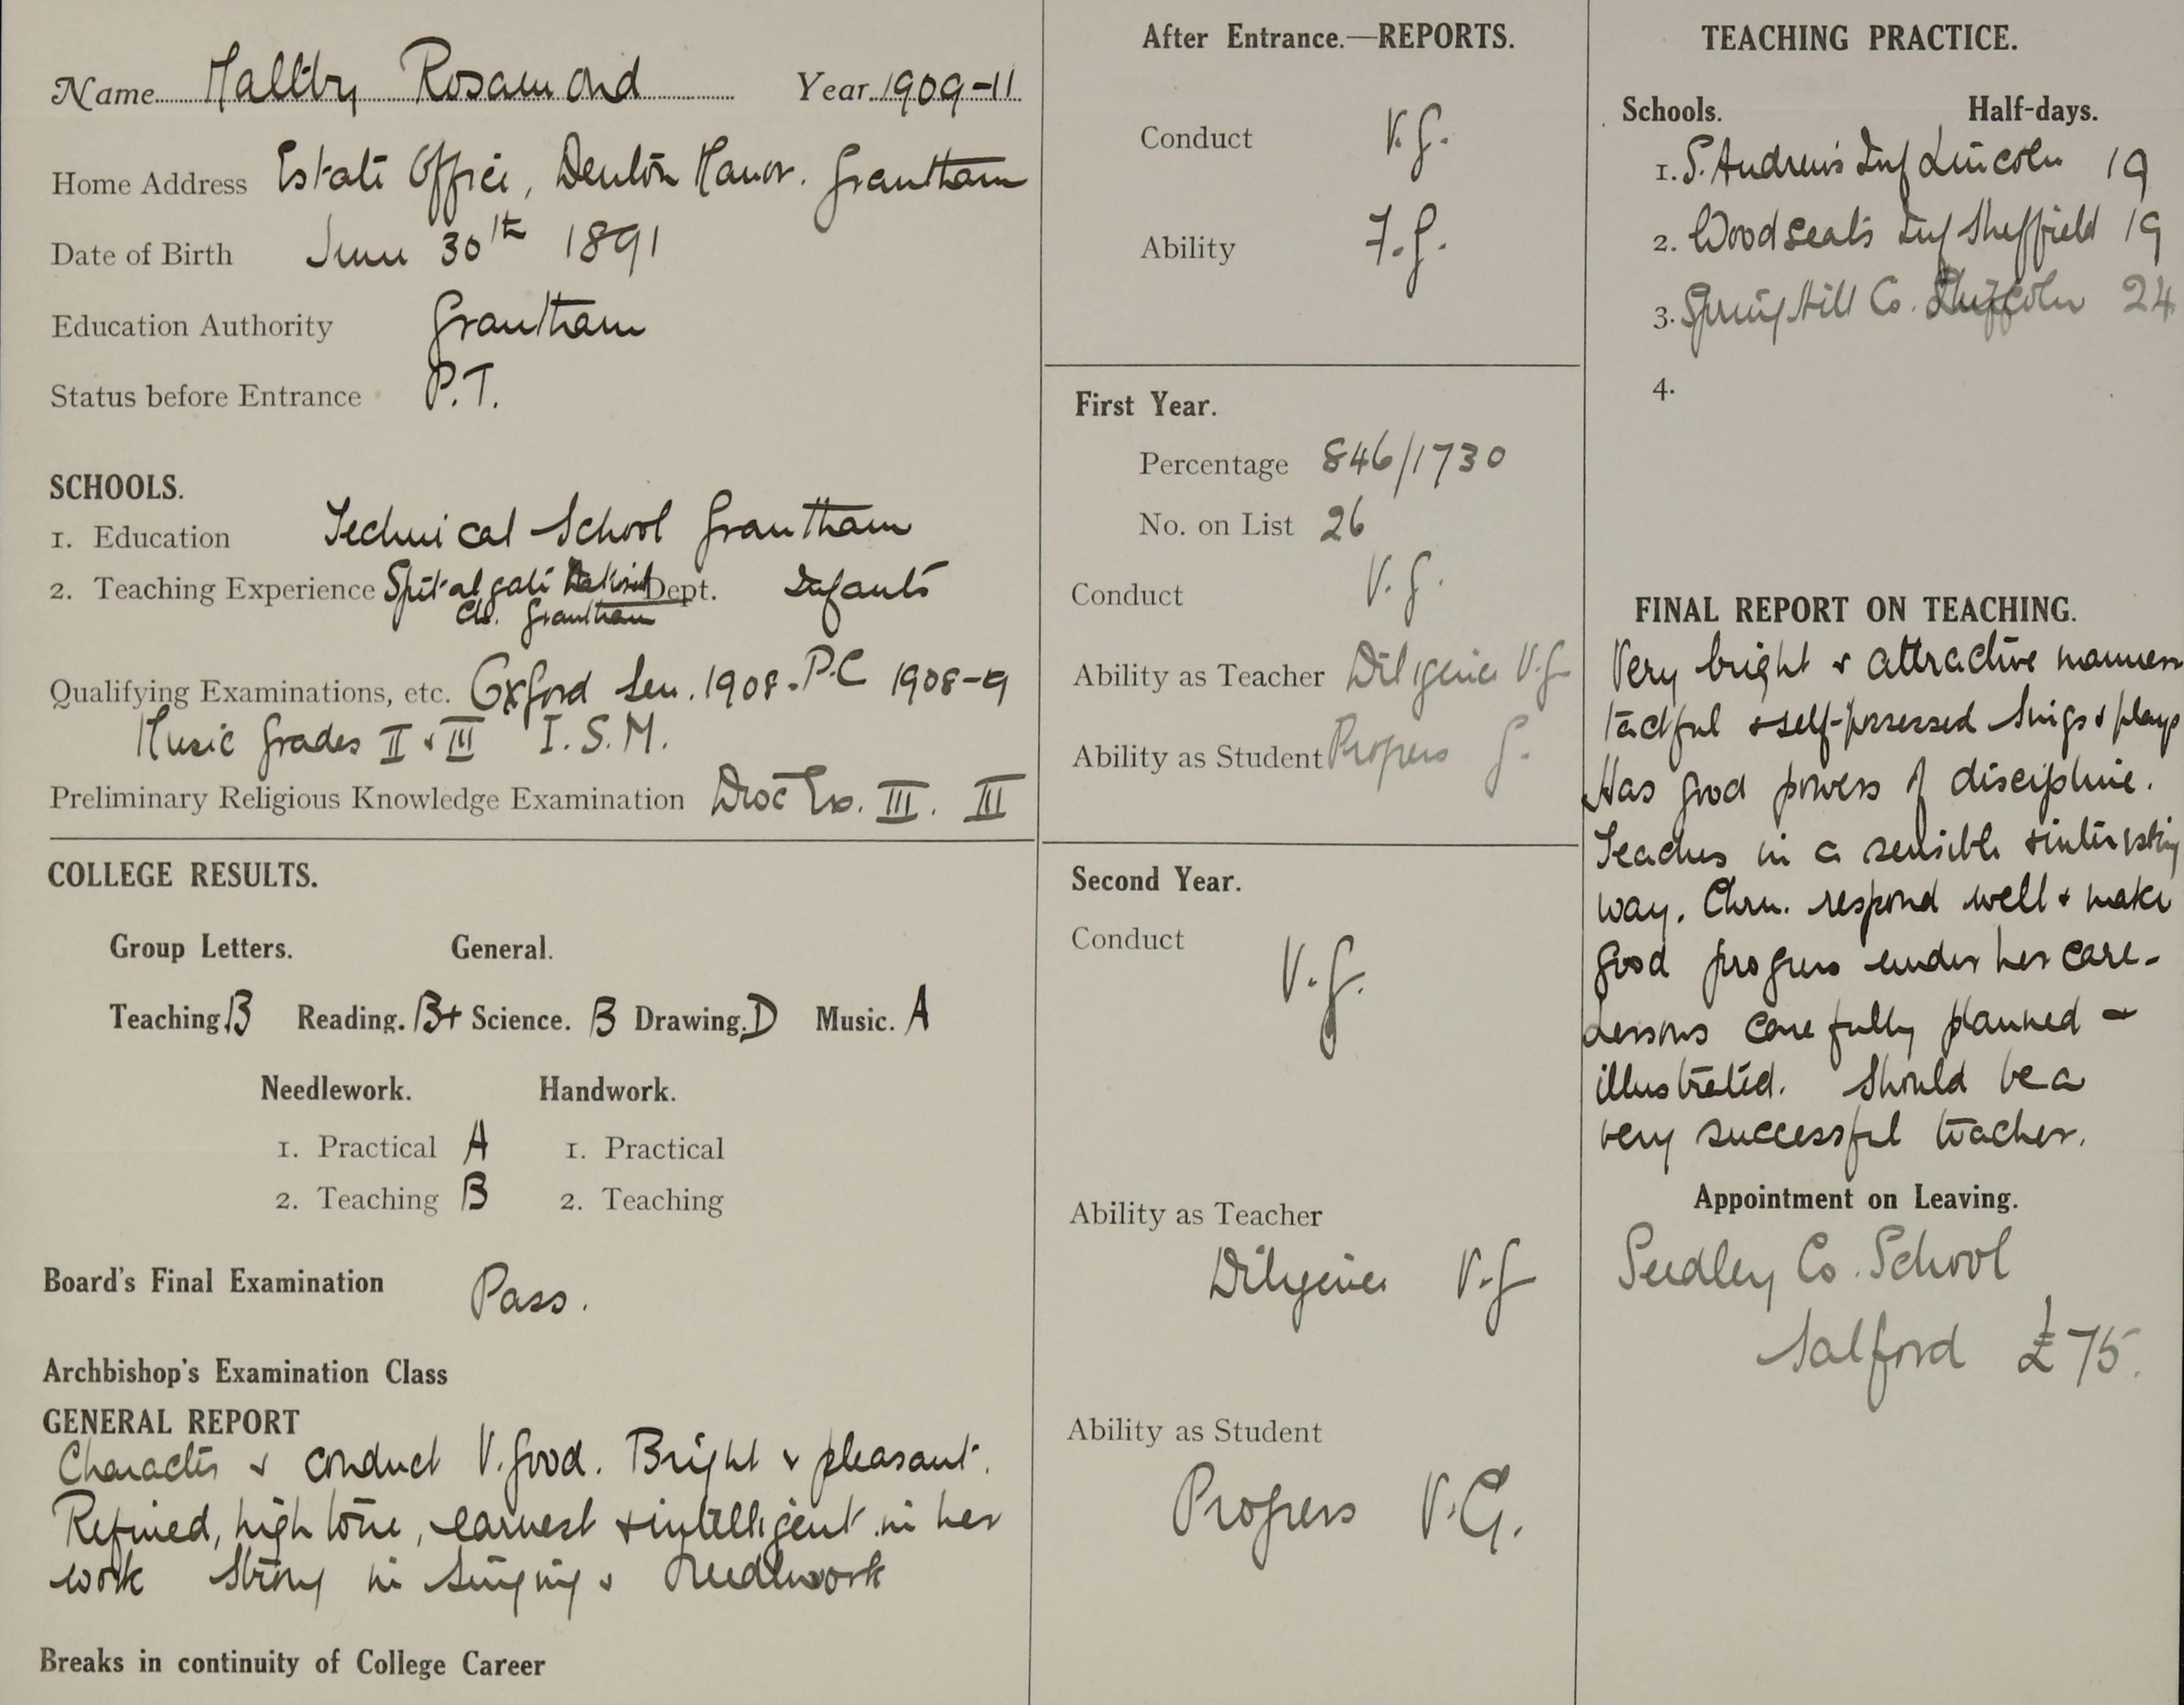 Name Maltby Rosamond Year 1909-11
Home Address Estate Office, Denton Manor. Grantham
Date of Birth June 30th 1891
Education Authority Grantham
Status before Entrance P.T.
SCHOOLS.
1. Education Technical School Grantham
2. Teaching Experience Spitalgate Dept. Infants
Grantham
Qualifying Examinations, etc. Oxford Sen. 1908. P.C 1908-9
Music Grades II & III I.S.M.
Preliminary Religious Knowledge Examination Dioc Ex. III. III
COLLEGE RESULTS.
Group Letters. General.
Teaching B Reading. B+ Science. B Drawing. D Music. A
Needlework. Handwork.
1. Practical A 1. Practical
2. Teaching B 2. Teaching
Board's Final Examination Pass.
Archbishop's Examination Class
GENERAL REPORT
Character & conduct V. Good. Bright & pleasant.
Refined, high tone, earnest & intelligent in her
work Strong in Singing & Needlework
Breaks in continuity of College Career
After Entrance.—REPORTS.
Conduct V.G.
Ability F.G.
First Year.
Percentage 846/1730
No. on List 26
Conduct V.G.
Ability as Teacher Diligence V.G
Ability as Student Progress G.
Second Year.
Conduct V.G.
Ability as Teacher
Diligence V.G
Ability as Student
Progress V.G.
TEACHING PRACTICE.
Schools. Half-days.
1. S. Andrew's Inf Lincoln 19
2. Woodseats Inf Sheffield 19
3. Spring Hill Co. Lincoln 24
4.
FINAL REPORT ON TEACHING.
Very bright & attractive manner
tactful & self-possessed Sings & plays
Has good powers of discipline.
Teaches in a sensible & interesting
way. Chn. respond well & make
good progress under her care.
Lessons carefully planned &
illustrated. Should be a
very successful teacher.
Appointment on Leaving.
Seedley Co. School
Salford £75.